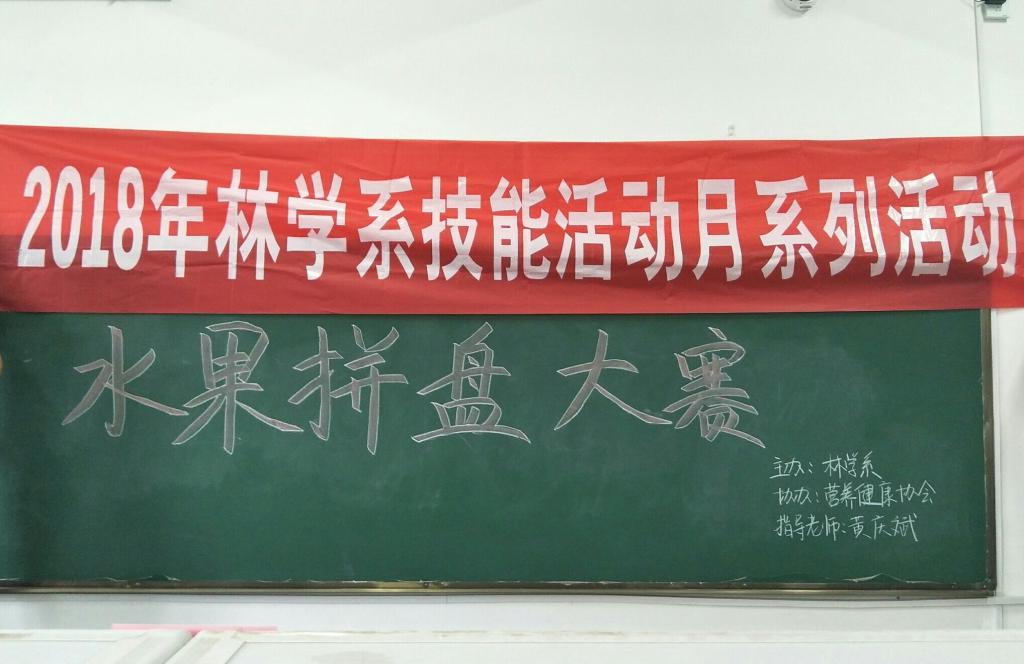 2018年林学系技能活动月系列活动
水果拼盘大赛
主办：林学系
协办：营养健康协会
指导老师：黄庆斌